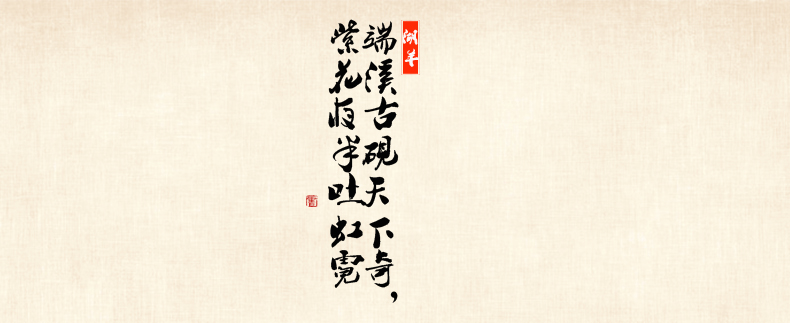 端溪古砚天下奇，
紫花夜半吐虹霓